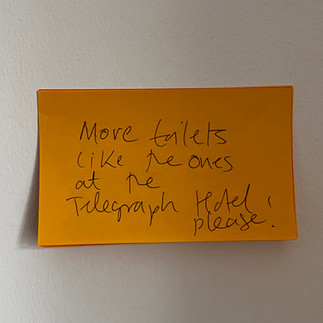 More toilets
like the ones
at the
Telegraph Hotel,
please.